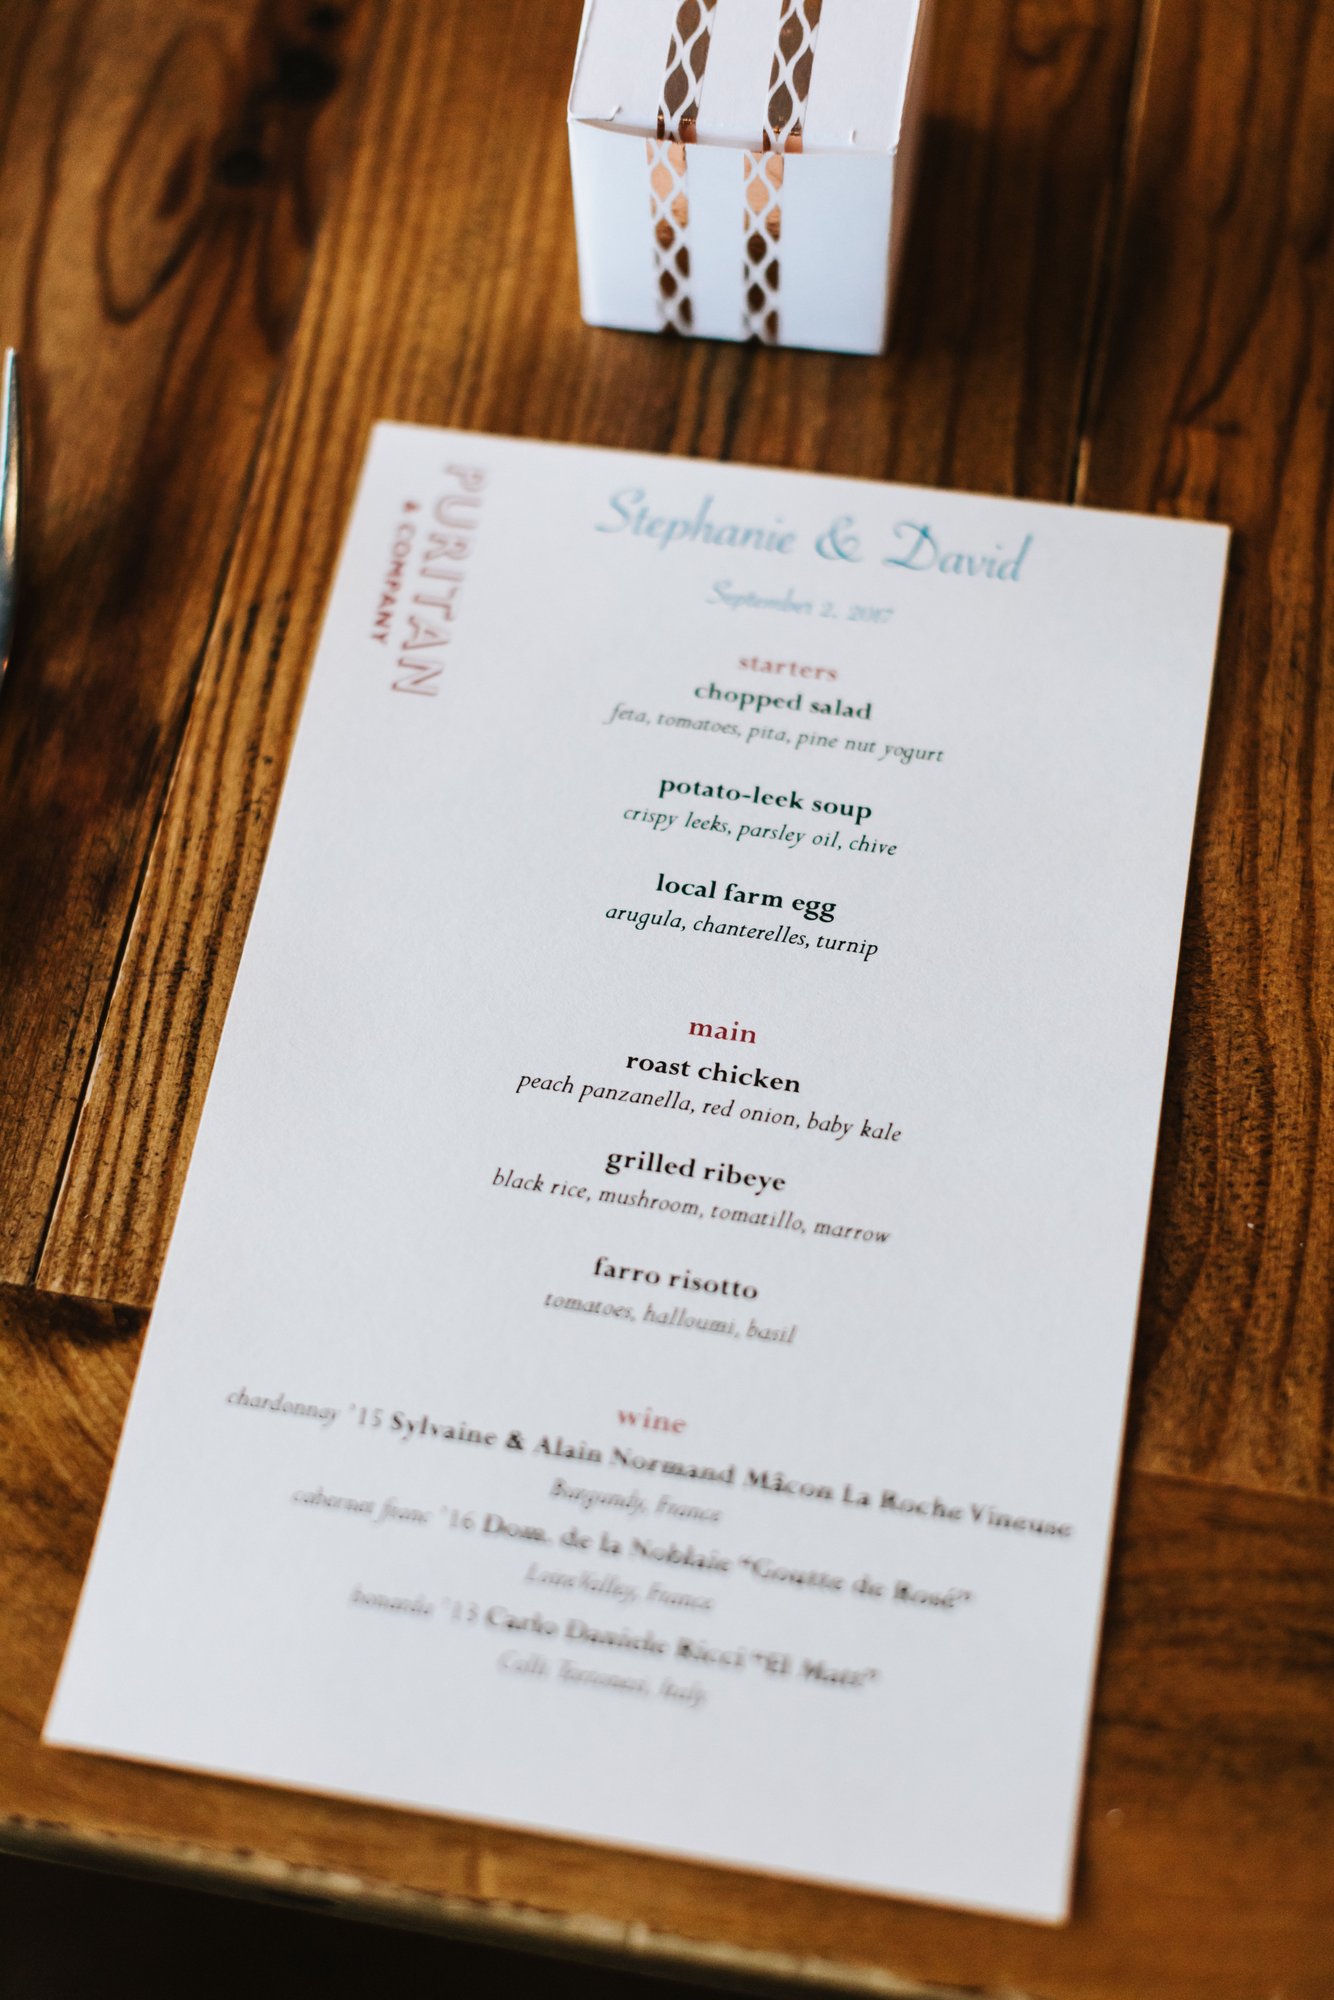 PURITAN
& COMPANY
Stephanie & David
September 2, 2017
starters
chopped salad
feta, tomatoes, pita, pine nut yogurt
potato-leek soup
crispy leeks, parsley oil, chive
local farm egg
arugula, chanterelles, turnip
main
roast chicken
peach panzanella, red onion, baby kale
grilled ribeye
black rice, mushroom, tomatillo, marrow
farro risotto
tomatoes, halloumi, basil
wine
chardonnay '15 Sylvaine & Alain Normand Mâcon La Roche Vineuse
Burgundy, France
cabernet franc '16 Dom. de la Noblaie "Goutte de Rosé"
Loire Valley, France
bonarda '13 Carlo Daniele Ricci "El Matt"
Colli Tortonesi, Italy